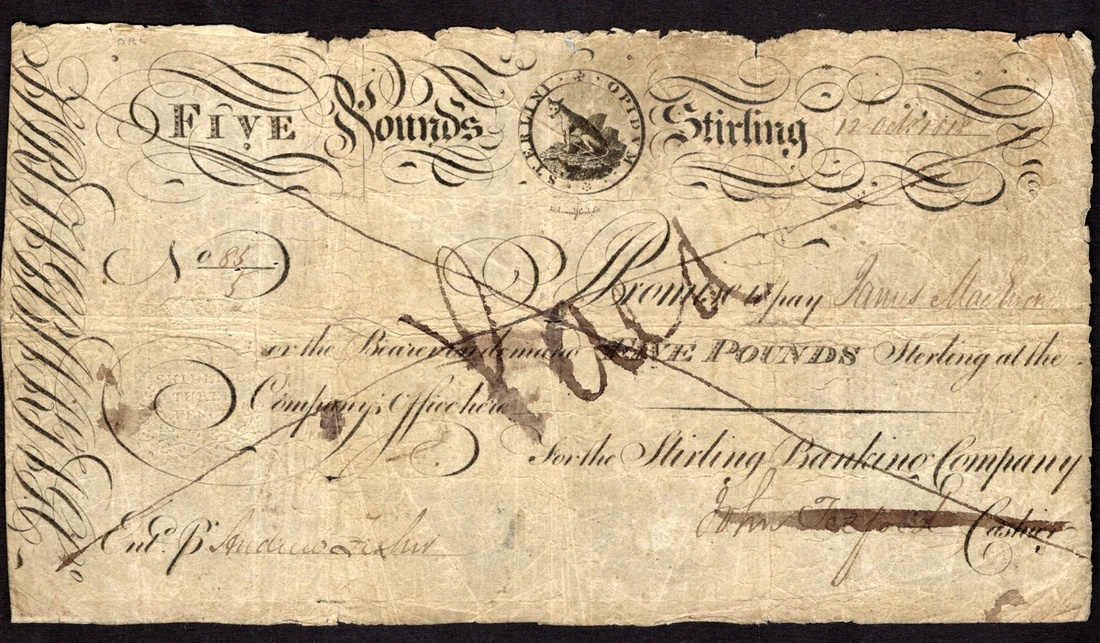 FIVE Pounds
STERLINI OPIDVM
Stirling 12 Oct
No 85/5
Promise to pay James
or the Bearer on demand FIVE POUNDS Sterling at the
Company's Office here
For the Stirling Banking Company
Entd. Pr. Andrew
John Cashier
Paid